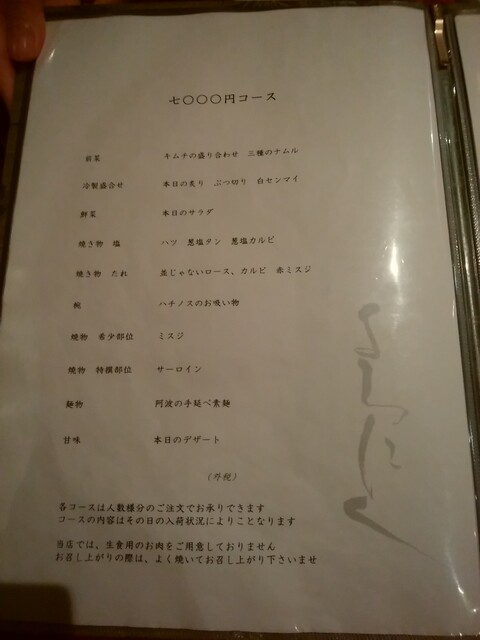 七〇〇〇円コース
前菜 キムチの盛り合わせ 三種のナムル
冷製盛合せ 本日の炙り ぶつ切り 白センマイ
鮮菜 本日のサラダ
焼き物 塩 ハツ 葱塩タン 葱塩カルビ
焼き物 たれ 並じゃないロース、カルビ 赤ミスジ
椀 ハチノスのお吸い物
焼物 希少部位 ミスジ
焼物 特撰部位 サーロイン
麺物 阿波の手延べ素麺
甘味 本日のデザート
(外税)
各コースは人数様分のご注文でお承りできます
コースの内容はその日の入荷状況によりことなります
当店では、生食用のお肉をご用意しておりません
お召し上がりの際は、よく焼いてお召し上がり下さいませ